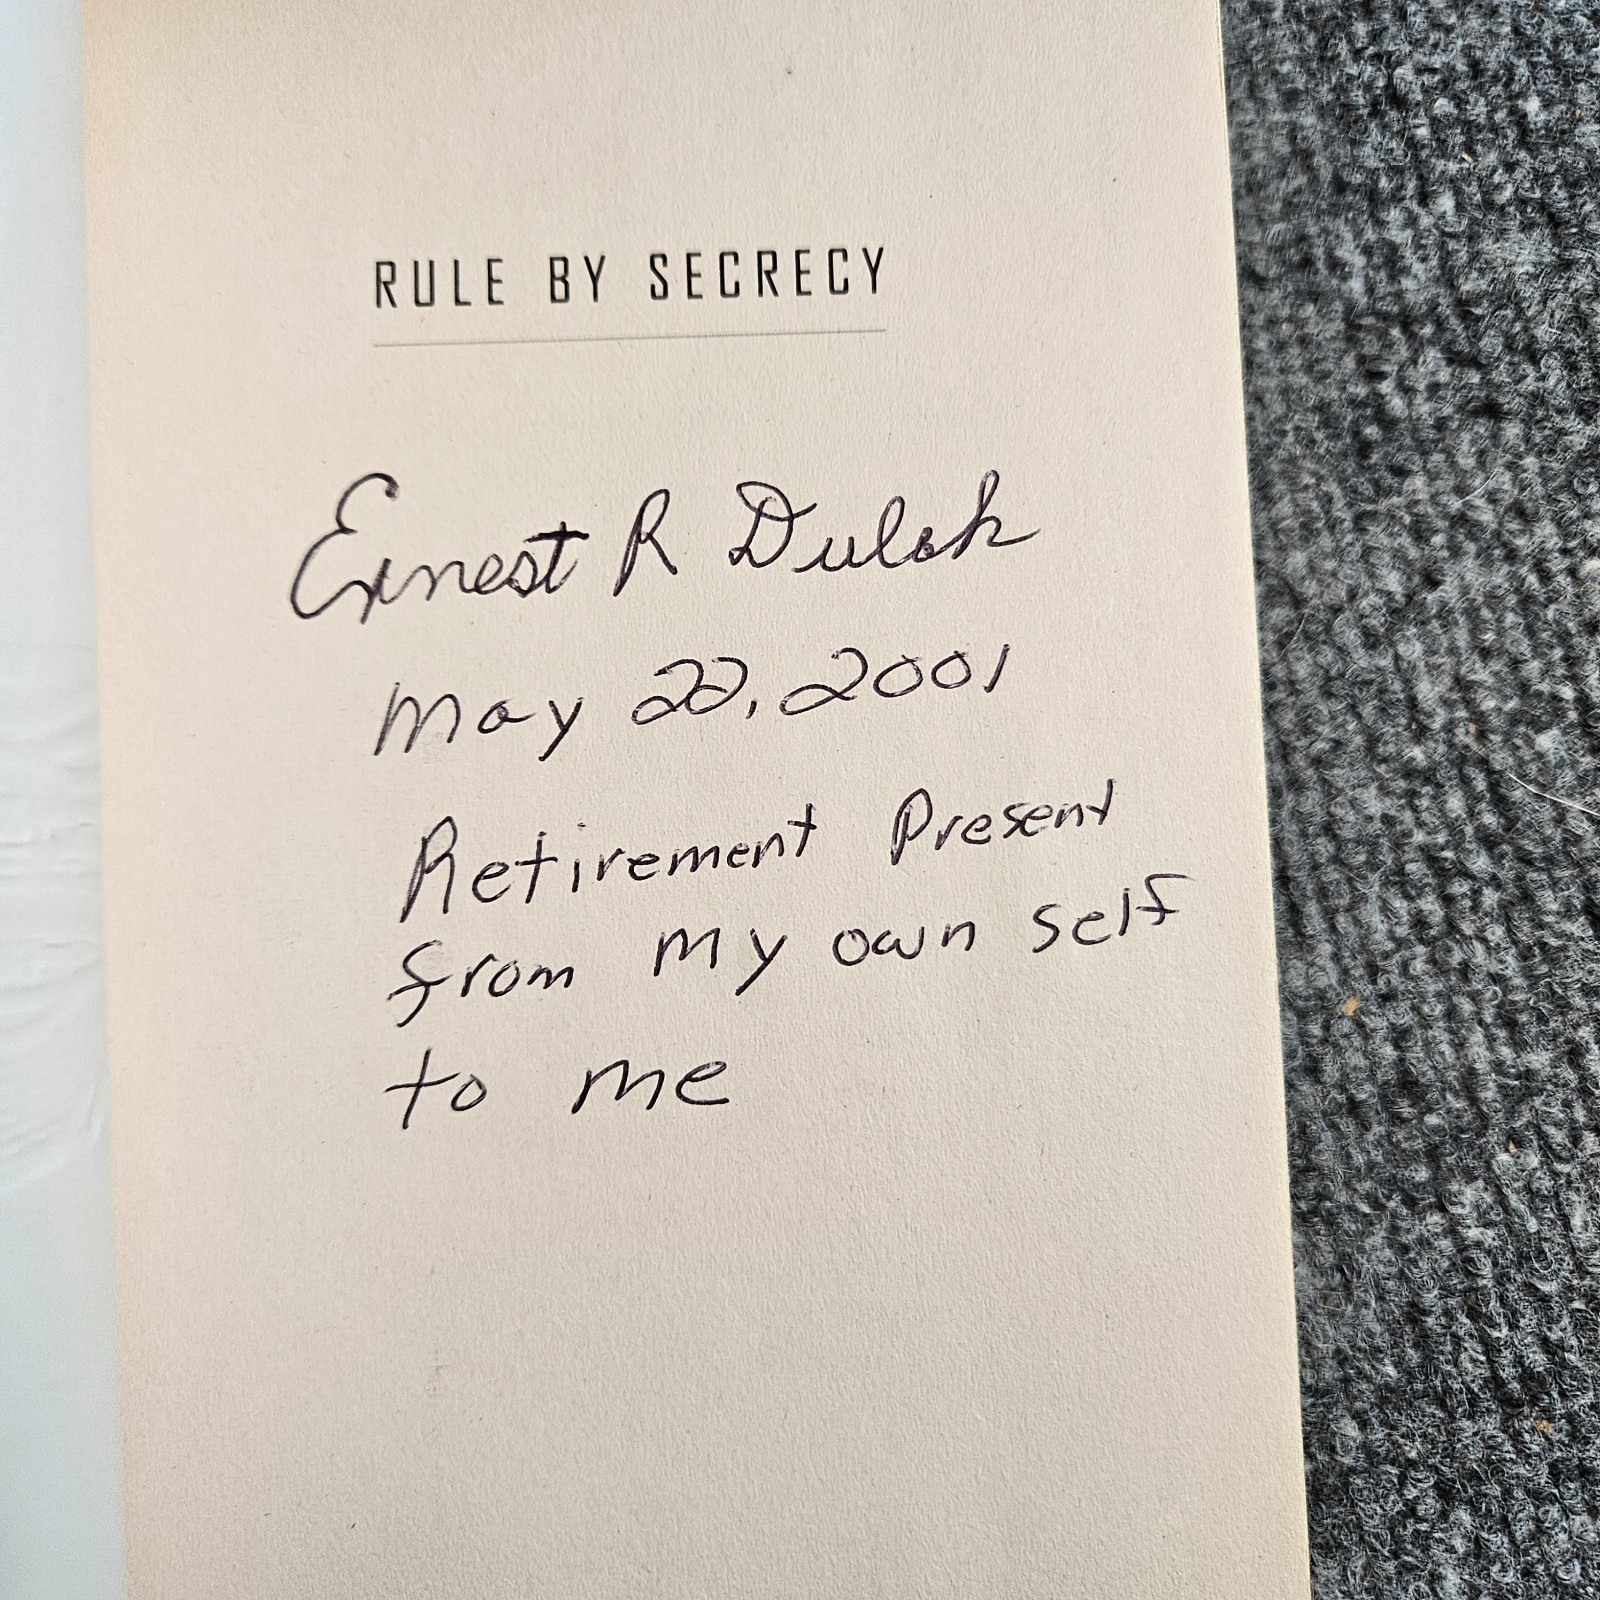 RULE BY SECRECY
Ernest R Dulak
May 22, 2001
Retirement Present
from my own self
to me